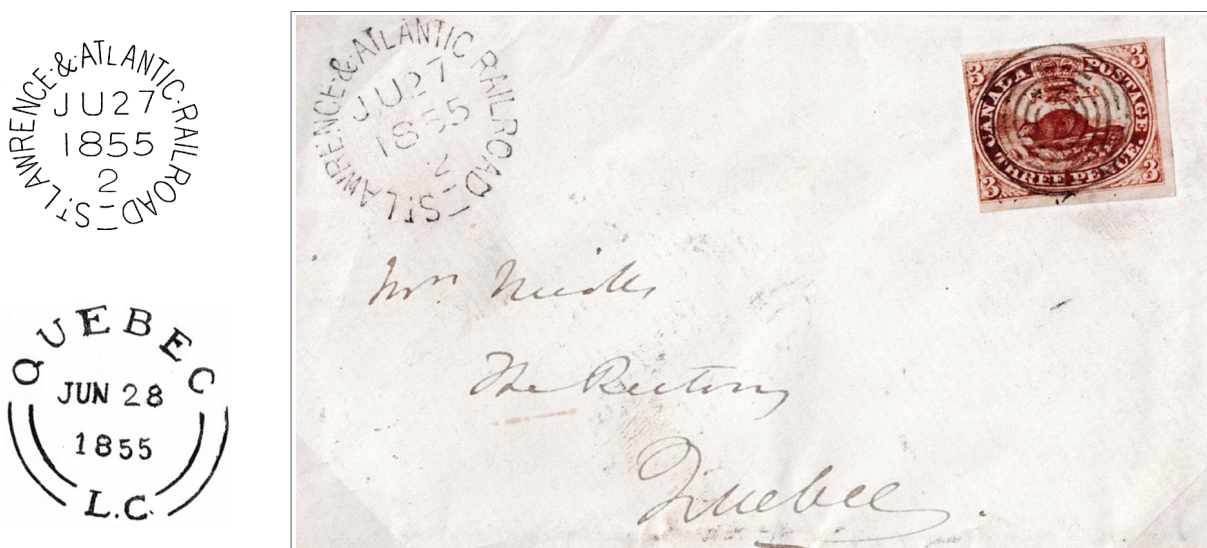 ST. LAWRENCE·&·ATLANTIC·RAILROAD
JU27
1855
2
QUEBEC
JUN 28
1855
L.C.
ST. LAWRENCE·&·ATLANTIC RAILROAD
JU27
1855
2
3 3
CANADA POSTAGE
THREE PENCE.
3 3
Mrs.
The Rectory
Quebec.